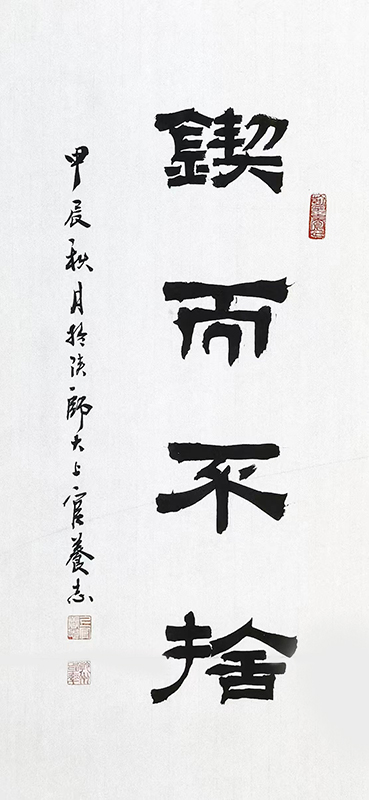 鍥而不捨
甲辰秋月於陝師大上官養志